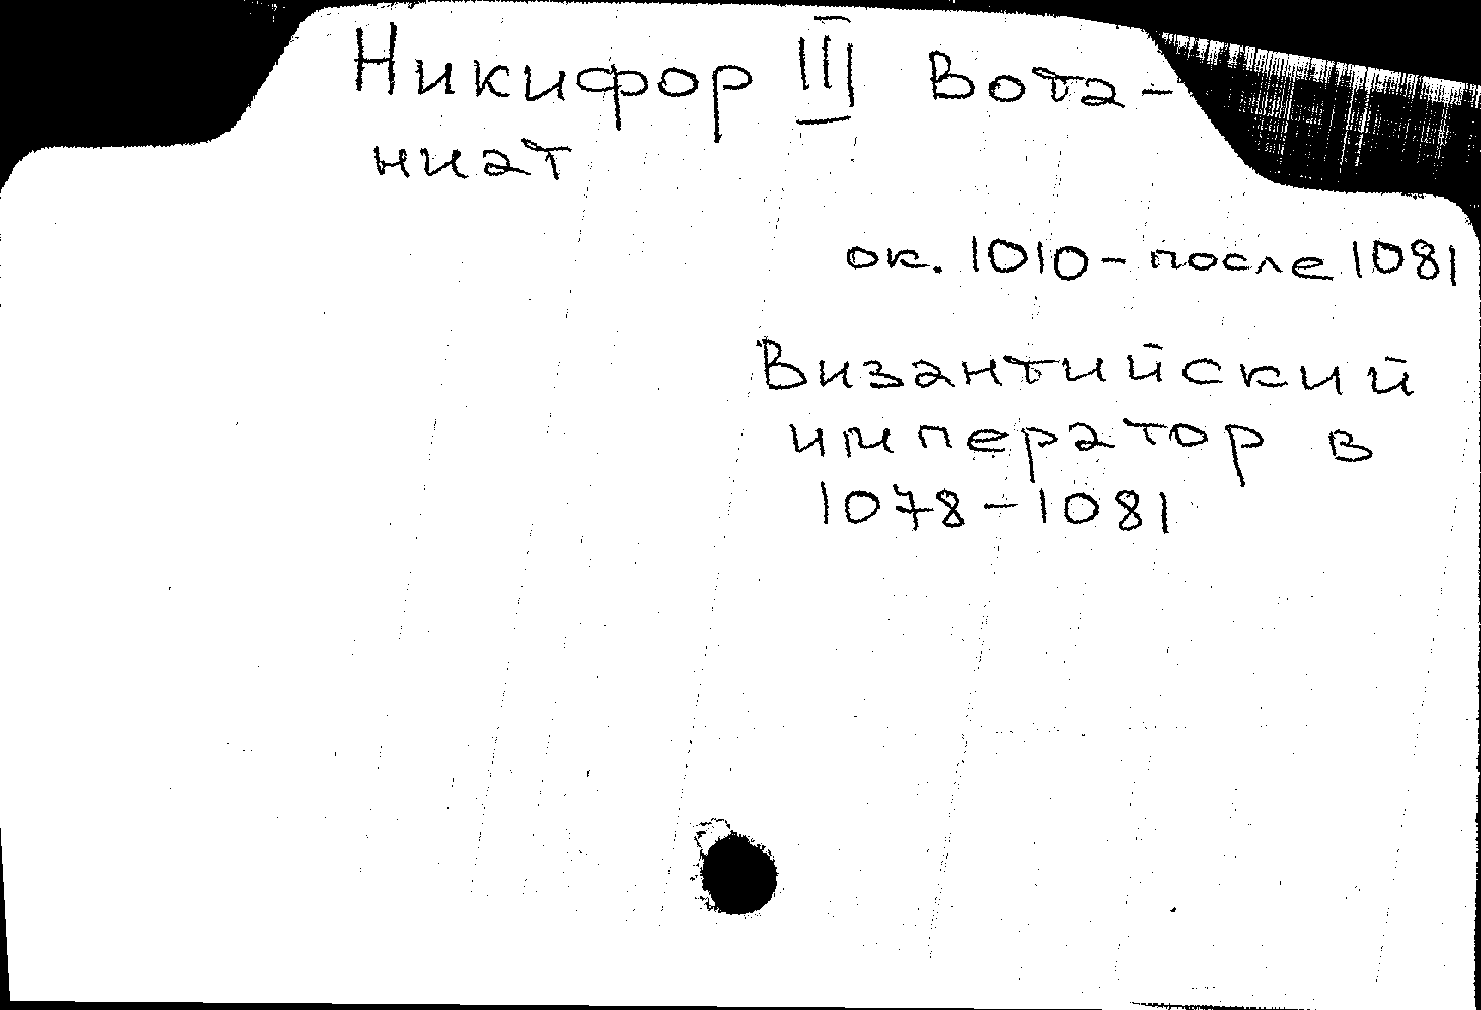 Никифор III Вота-
ниат
ок. 1010 - после 1081
Византийский
император в
1078-1081